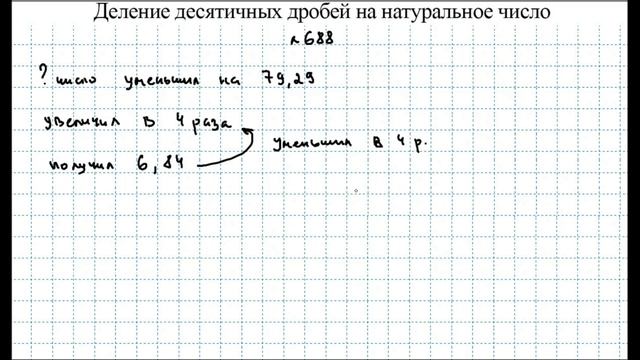 Деление десятичных дробей на натуральное число
№688
? число уменьшил на 79,29
увеличил в 4 раза
уменьшил в 4 р.
получил 6,84